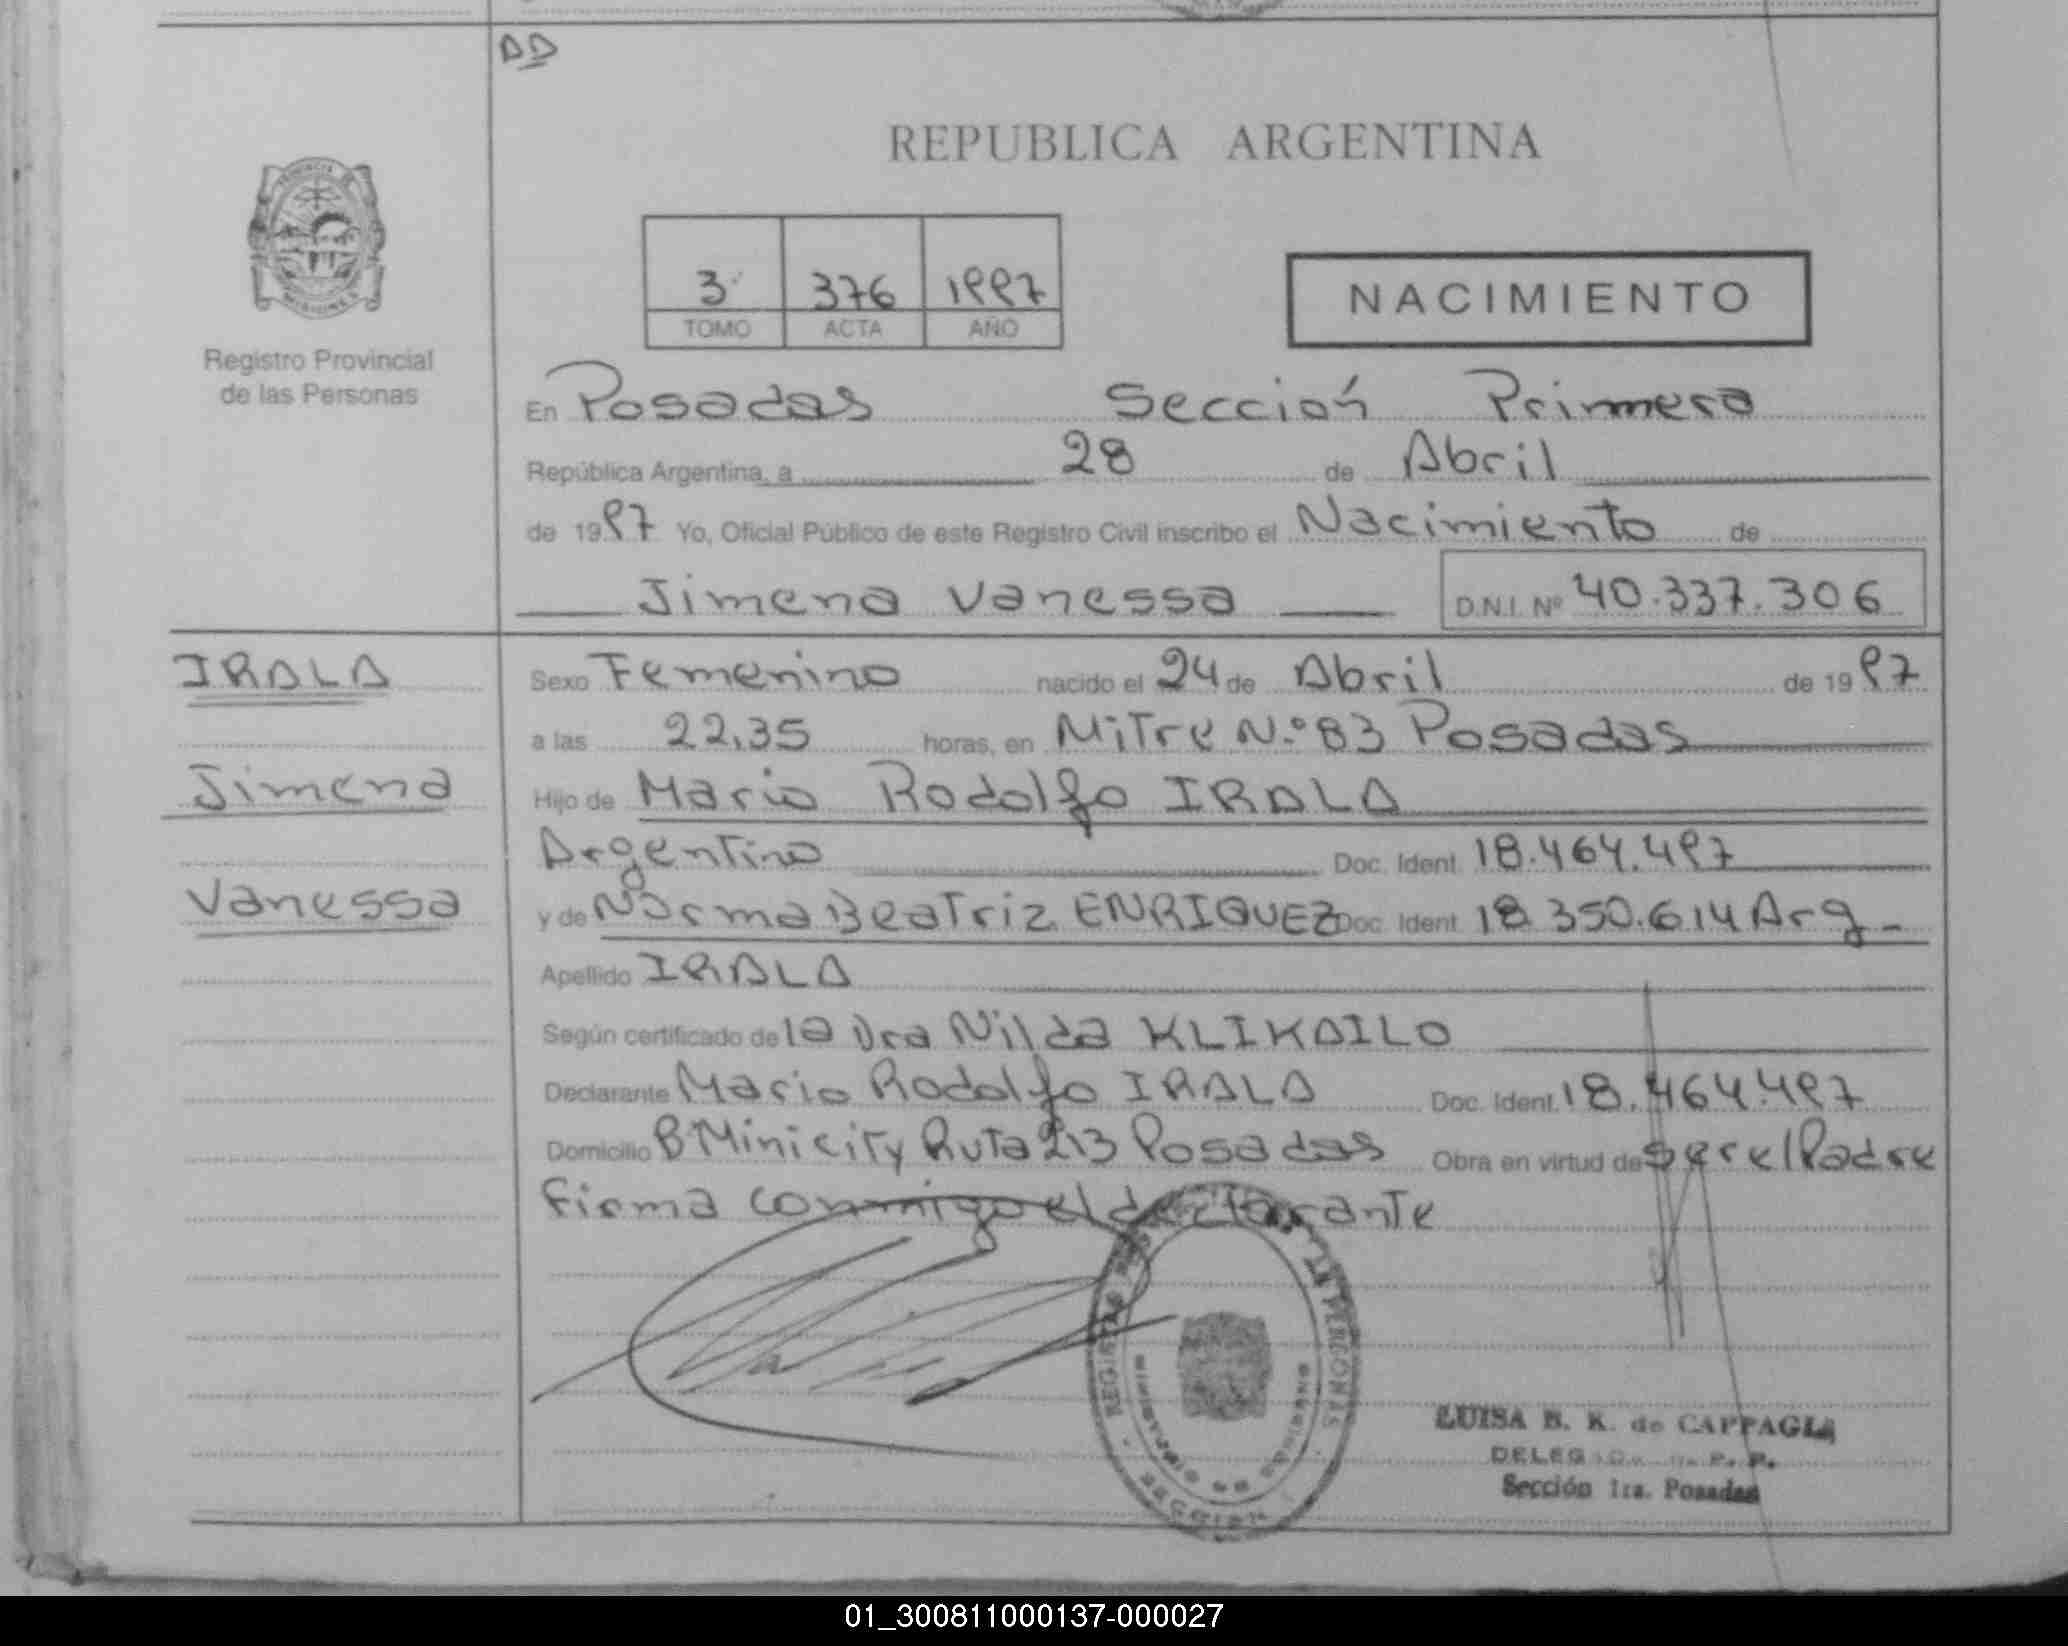 DD
REPUBLICA ARGENTINA
PROVINCIA DE
MISIONES
Registro Provincial
de las Personas
3 376 1997
TOMO ACTA AÑO
NACIMIENTO
En Posadas Sección Primera
República Argentina, a 28 de Abril
de 1997 Yo, Oficial Público de este Registro Civil inscribo el Nacimiento de
Jimena Vanessa D.N.I. Nº 40.337.306
IRALA
Jimena
Vanessa
Sexo Femenino nacido el 24 de Abril de 1997
a las 22,35 horas, en Mitre N.º 83 Posadas
Hijo de Mario Rodolfo IRALA
Argentino Doc. Ident. 18.464.497
y de Norma Beatriz ENRIQUEZ Doc. Ident. 18.350.614 Arg-
Apellido IRALA
Según certificado de la Dra Nilda KLIKAILO
Declarante Mario Rodolfo IRALA Doc. Ident. 18.464.497
Domicilio Bº Minicity Ruta 213 Posadas Obra en virtud de ser el Padre
Firma conmigo el declarante
LAS PERSONAS
MINISTERIO DE GOBIERNO
LUISA B. K. de CAPPAGLI
DELEG R. P. P.
Sección 1ra. Posadas
01_300811000137-000027